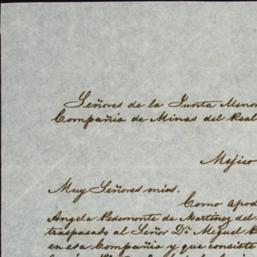 Señores de la Junta Menor
Compañia de Minas del Real
Mejico
Muy Señores mios.
Como apod
Angela Redemonte de Martinez del
traspasado al Señor Dn. Miguel
en esa Compañia y que consiste